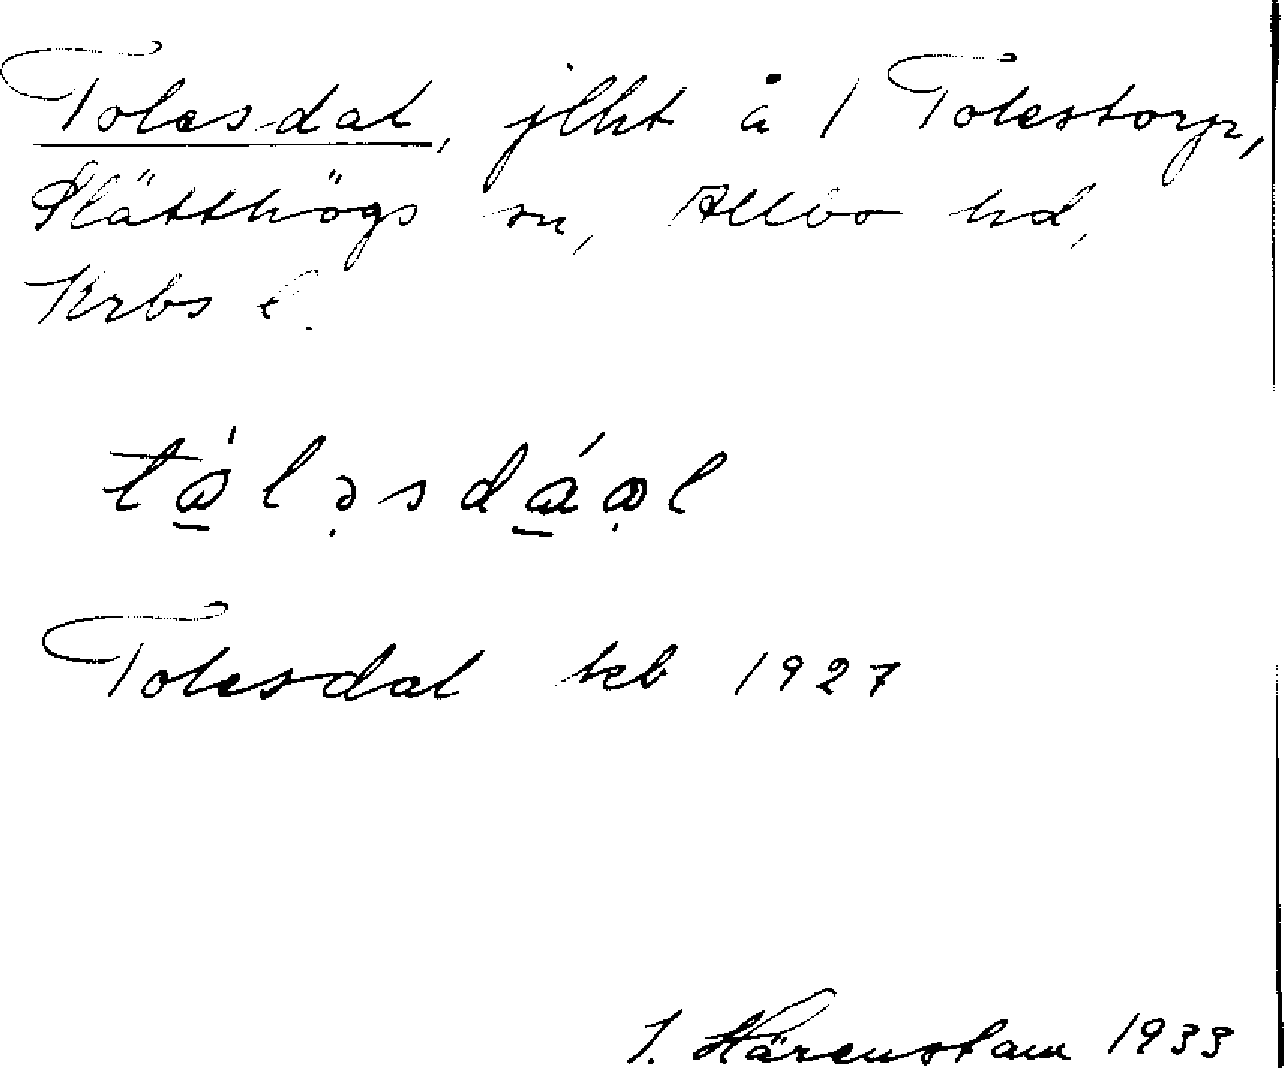 Tolesdal, jlht å 1 Tolestorp,
Slätthögs sn, Allbo hd,
Krbs l.
Tolesdal kb 1927
I. Härenstam 1933